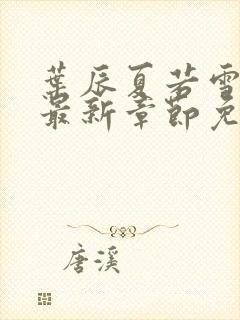 葉辰夏若雪
最新章節免
唐溪